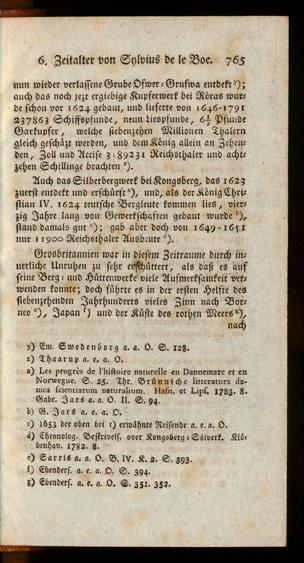 6. Zeitalter von Sylvius de le Boe. 765
nun wieder verlassene Grube Ofwer-Grufwa entdekt y);
auch das noch jezt ergiebige Kupferwerk bei Röras wur-
de schon vor 1624 gebaut, und lieferte von 1646-1791
237863 Schiffspfunde, neun Liespfunde, 6½ Pfunde
Garkupfer, welche siebenzehen Millionen Thalern
gleich geschäzt werden, und dem König allein an Zehen-
den, Zoll und Accise 3189231 Reichsthaler und acht-
zehen Schillinge brachten z).
Auch das Silberbergwerk bei Kongsberg, das 1623
zuerst entdekt und erschürft a), und, als der König Chri-
stian IV. 1624 teutsche Bergleute kommen lies, vier-
zig Jahre lang von Gewerkschaften gebaut wurde b),
stand damals gut c); gab aber doch von 1649-1651
nur 11900 Reichsthaler Ausbeute d).
Grosbritannien war in diesem Zeitraume durch in-
nerliche Unruhen zu sehr erschüttert, als daß es auf
seine Berg- und Hüttenwerke viele Aufmerksamkeit ver-
wenden konnte; doch führte es in der ersten Helfte des
siebenzehenden Jahrhunderts vieles Zinn nach Bor-
neo e), Japan f) und der Küste des rothen Meers g),
nach
y) Em. Swedenborg a. a. O. S. 128.
z) Thaarup a. e. a. O.
a) Les progrès de l'histoire naturelle en Dannemarc et en
Norwegue. S. 25. Thr. Brünniche litteratura da-
nica scientiarum naturalium. Hafn. et Lips. 1783. 8.
Gabr. Jars a. a. O. II. S. 94.
b) G. Jars a. e. a. O.
c) 1653 der oben bei t) erwähnte Reisende a. e. a. O.
d) Chronolog. Beskrivels. over Kongsberg-Sölverk. Kiö-
benhav. 1782. 8.
e) Sarris a. a. O. B. IV. K. 2. S. 393.
f) Ebenders. a. e. a. O. S. 394.
g) Ebenders. a. e. a. O. S. 351. 352.